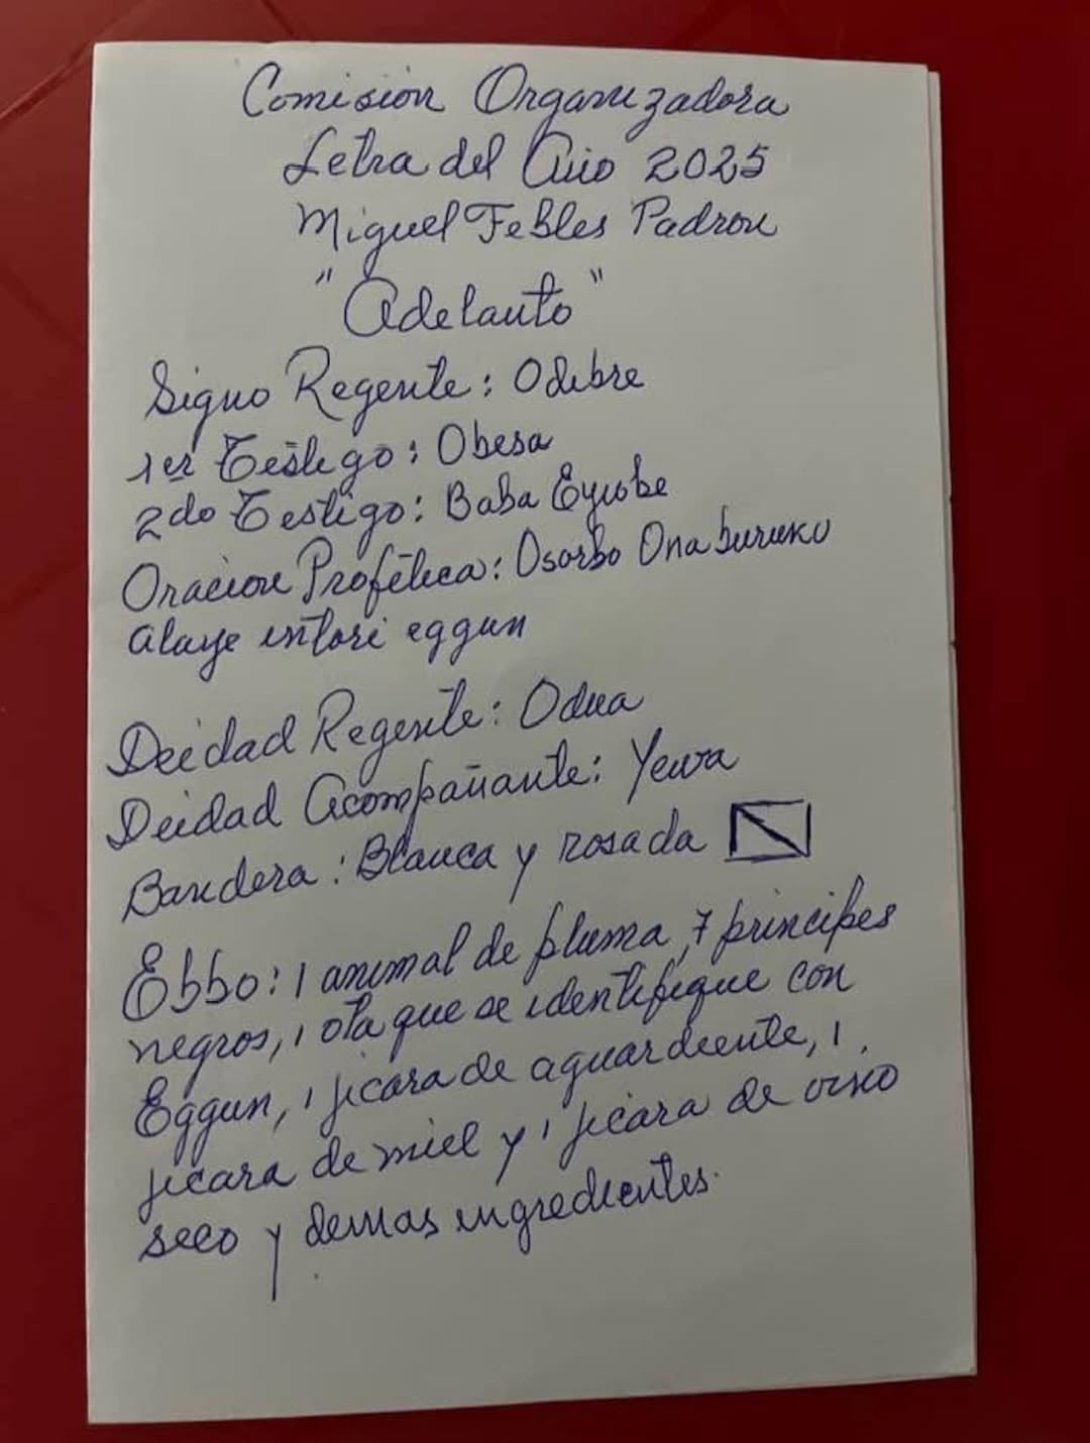 Comisión Organizadora
Letra del Año 2025
Miguel Febles Padron
"Adelanto"
Signo Regente: Odibre
1er Testigo: Obesa
2do Testigo: Baba Eyiobe
Oracion Profética: Osorbo Ona buruku
alaye intori eggun
Deidad Regente: Odua
Deidad acompañante: Yewa
Bandera: Blanca y rosada
Ebbo: 1 animal de pluma, 7 principes
negros, 1 ota que se identifique con
Eggun, 1 jicara de aguardiente, 1
jicara de miel y 1 jicara de vino
seco y demas ingredientes.